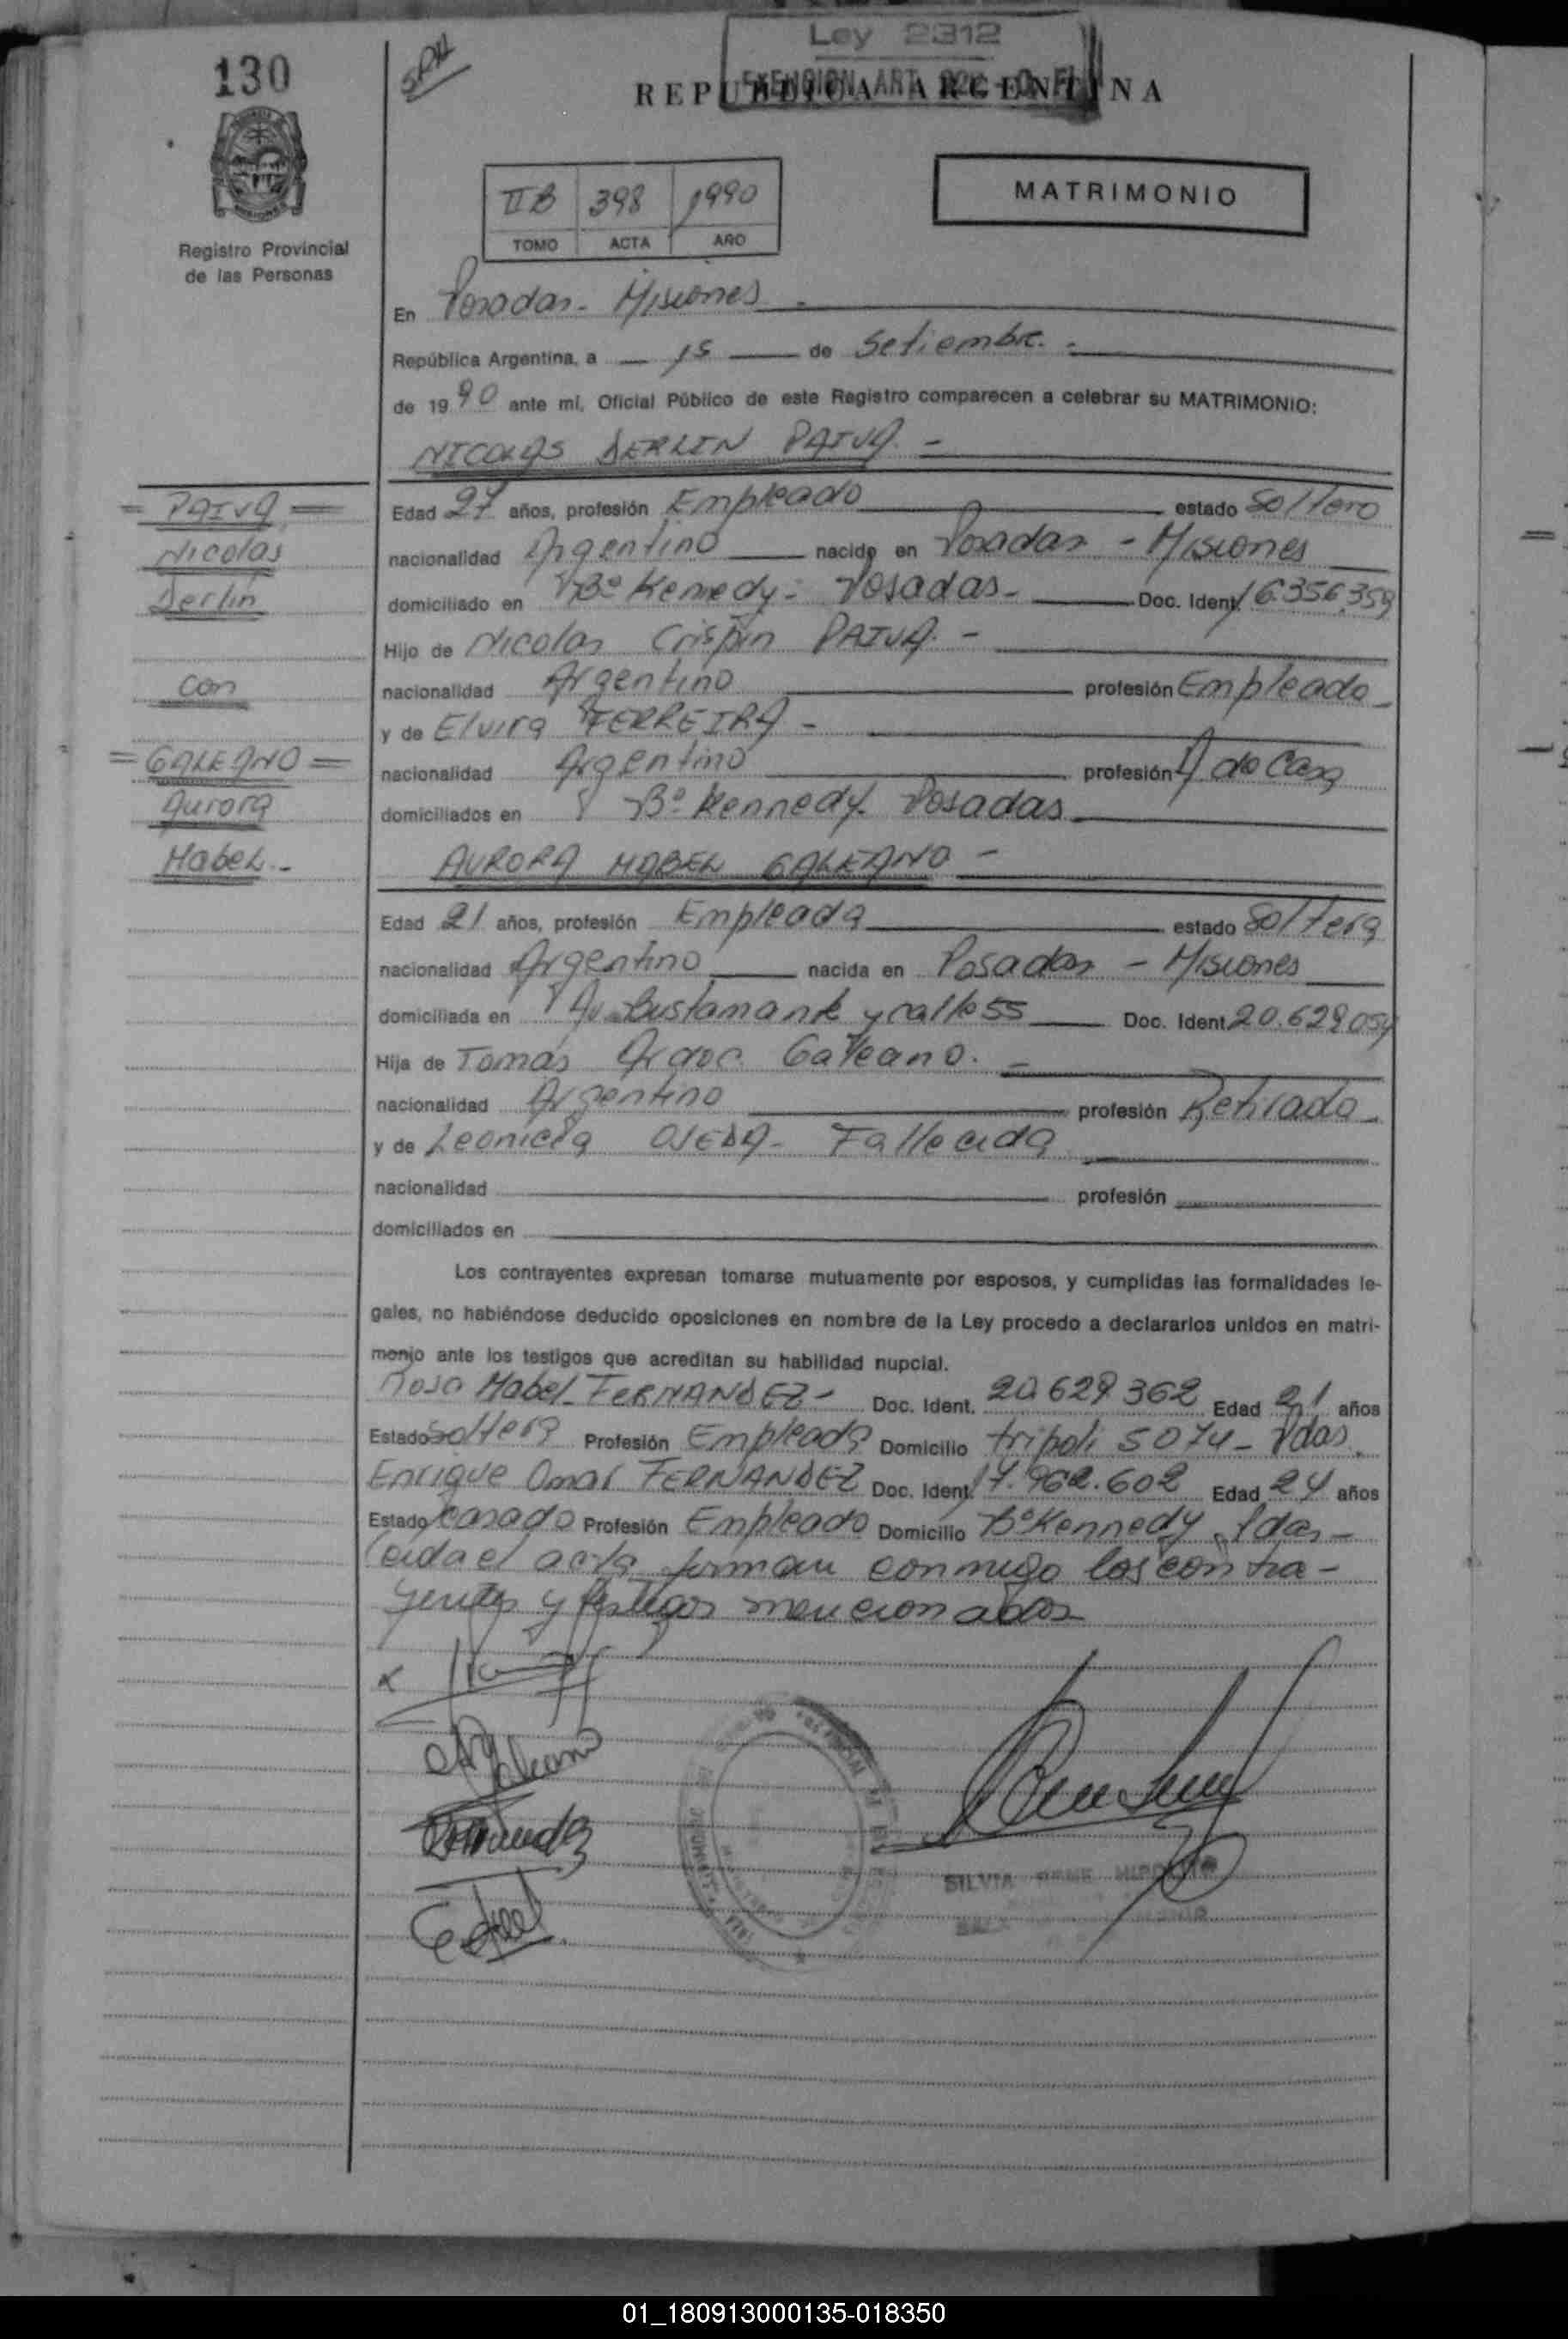 130
SPH
Ley 2312
EXENCION ART.
REPUBLICA ARGENTINA
II B 398 1990
TOMO ACTA AÑO
MATRIMONIO
Registro Provincial
de las Personas
En Posadas - Misiones -
República Argentina, a 15 de Setiembre. -
de 1990 ante mí, Oficial Público de este Registro comparecen a celebrar su MATRIMONIO:
NICOLAS DERLIN PAIVA. -
= PAIVA =
Nicolás
Derlin
con
= GALEANO =
Aurora
Mabel. -
Edad 27 años, profesión Empleado estado Soltero
nacionalidad Argentino nacido en Posadas - Misiones
domiciliado en Bº Kenedy - Posadas - Doc. Ident. 16.356.359
Hijo de Nicolas Crispin PAIVA. -
nacionalidad Argentino profesión Empleado -
y de Elvira FERREIRA -
nacionalidad Argentino profesión A de Casa
domiciliados en Bº Kennedy. Posadas
AURORA MABEL GALEANO -
Edad 21 años, profesión Empleada estado Soltera
nacionalidad Argentino nacida en Posadas - Misiones
domiciliada en Av. Bustamante y calle 55 Doc. Ident. 20.629.054
Hija de Tomás Galeano. -
nacionalidad Argentino profesión Retirado -
y de OJEDA - Fallecida
nacionalidad profesión
domiciliados en
Los contrayentes expresan tomarse mutuamente por esposos, y cumplidas las formalidades le-
gales, no habiéndose deducido oposiciones en nombre de la Ley procedo a declararlos unidos en matri-
monio ante los testigos que acreditan su habilidad nupcial.
Rosa Mabel FERNANDEZ - Doc. Ident. 20.629 362 Edad 21 años
Estado Soltera Profesión Empleada Domicilio tripoli 5074 - Pdas.
Enrique Omar FERNANDEZ Doc. Ident. 17.962.602 Edad 24 años
Estado Casado Profesión Empleado Domicilio Bº Kennedy. Pdas -
Leida el acta firman conmigo los contra-
yentes y testigos mencionados
x
Galeano
Fernandez
SILVIA
01_180913000135-018350